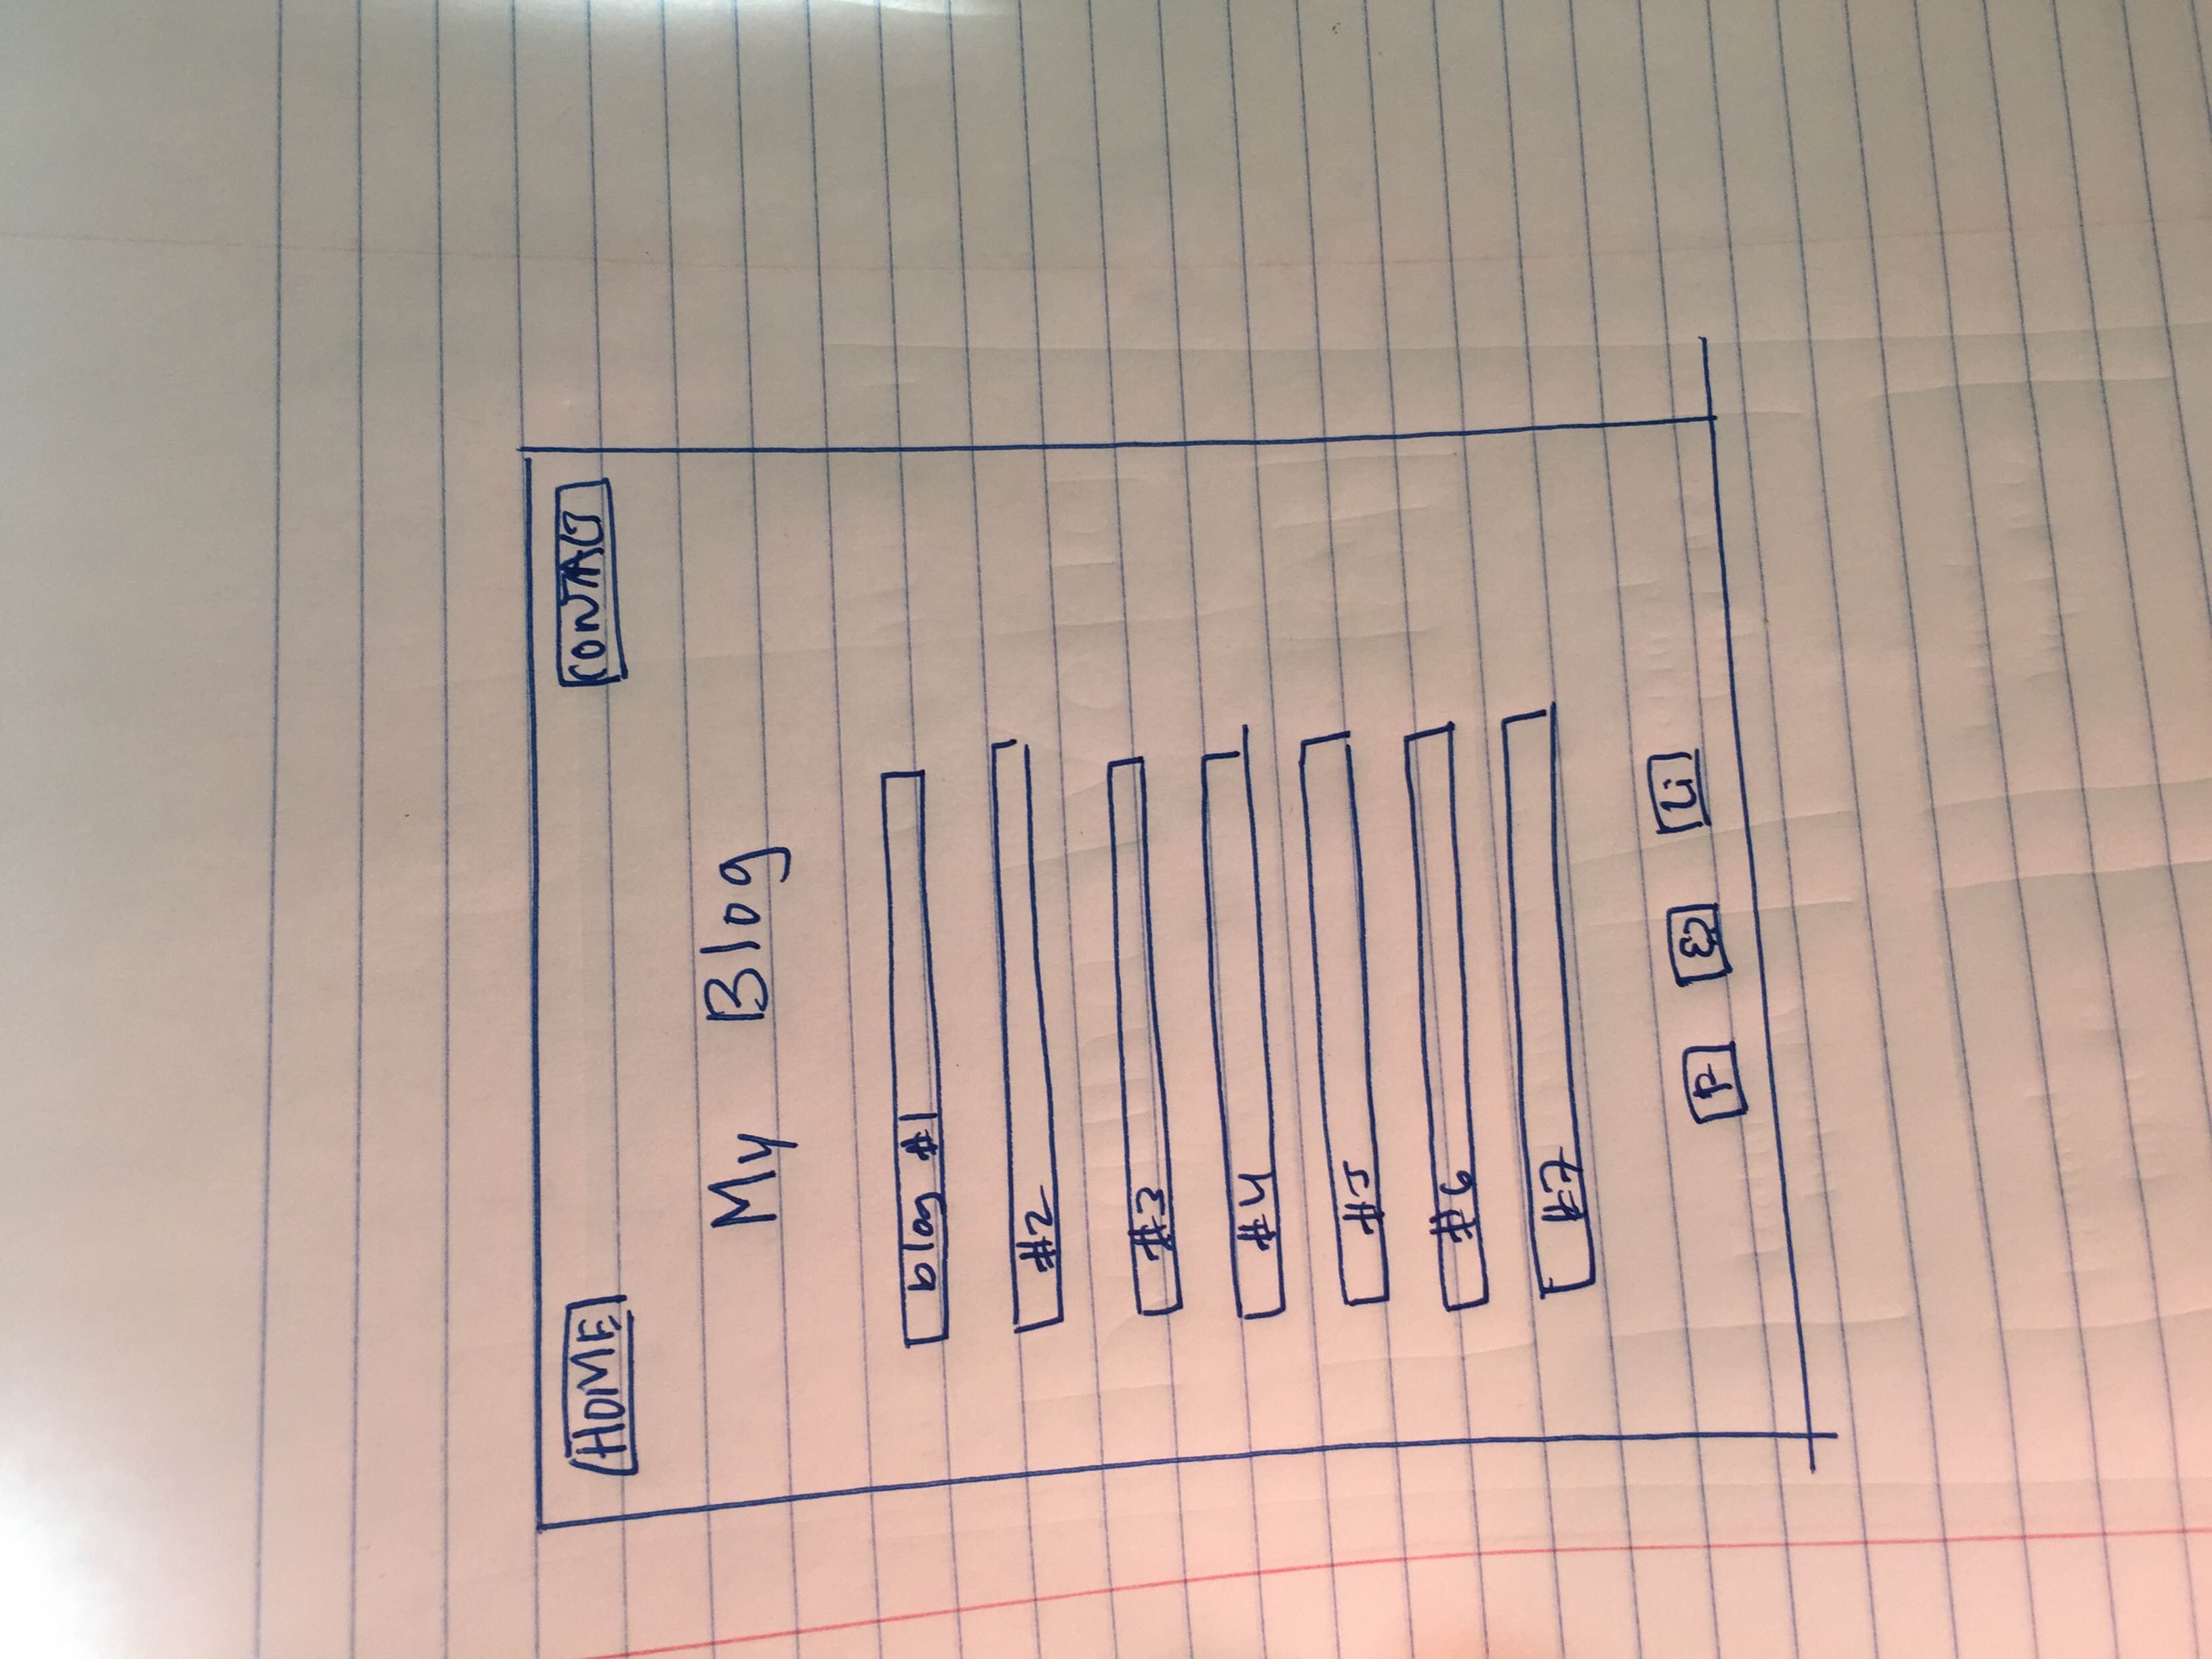 HOME CONTACT
My Blog
blog #1
#2
#3
#4
#5
#6
#7
Li